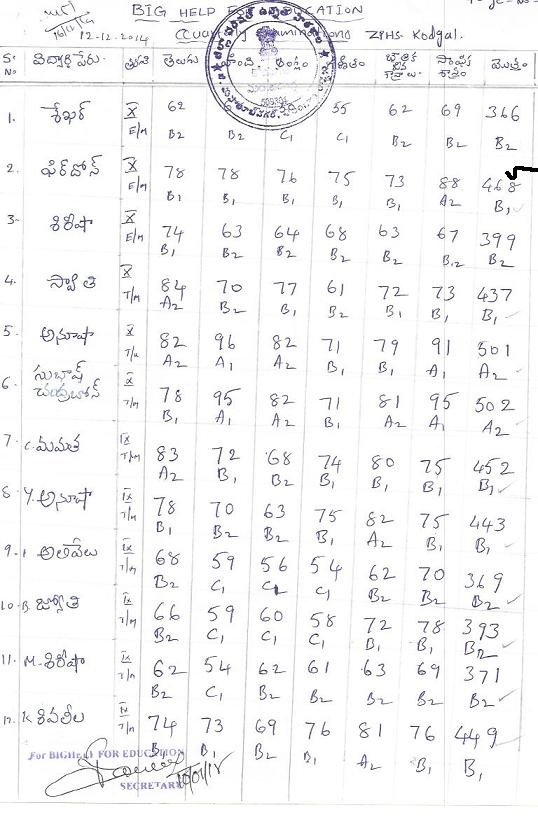 BIG HELP FOR EDUCATION
12-12-2014 Quarterly Examinations ZPHS- Kodgal.
Sr No విద్యార్థి పేరు తెలుగు హింది గణితం మొత్తం
1. శేఖర్ X E/M 62 55 62 69 366
B2 B2 C1 C1 B2 B2 B2
2. ఫిర్దోస్ X E/M 78 78 76 75 73 88 468
B1 B1 B1 B1 B1 A2 B1
3- శిరీషా X E/M 74 63 64 68 63 67 399
B1 B2 B2 B2 B2 B2 B2
4. స్వాతి X T/M 84 70 77 61 72 73 437
A2 B2 B1 B2 B1 B1 B1
5. అనూషా X T/M 82 96 82 71 79 91 501
A2 A1 A2 B1 B1 A1 A2
6. సుభాష్
చంద్రబోస్ X T/M 78 95 82 71 81 95 502
B1 A1 A2 B1 A2 A1 A2
7. C. మమత IX T/M 83 72 68 74 80 75 452
A2 B1 B2 B1 B1 B1 B1
8. Y. అనూషా IX T/M 78 70 63 75 82 75 443
B1 B2 B2 B1 A2 B1 B1
9. అలివేలు IX T/M 68 59 56 54 62 70 369
B2 C1 C1 C1 B2 B2 B2
10. B. జ్యోతి IX T/M 66 59 60 58 72 78 393
B2 C1 C1 C1 B1 B1 B2
11. M. శిరీషా IX T/M 62 54 62 61 63 69 371
B2 C1 B2 B2 B2 B2 B2
12. K శివలీల IX T/M 74 73 69 76 81 76 449
B1 B1 B2 B1 A2 B1 B1
For BIGHELP FOR EDUCATION
SECRETARY